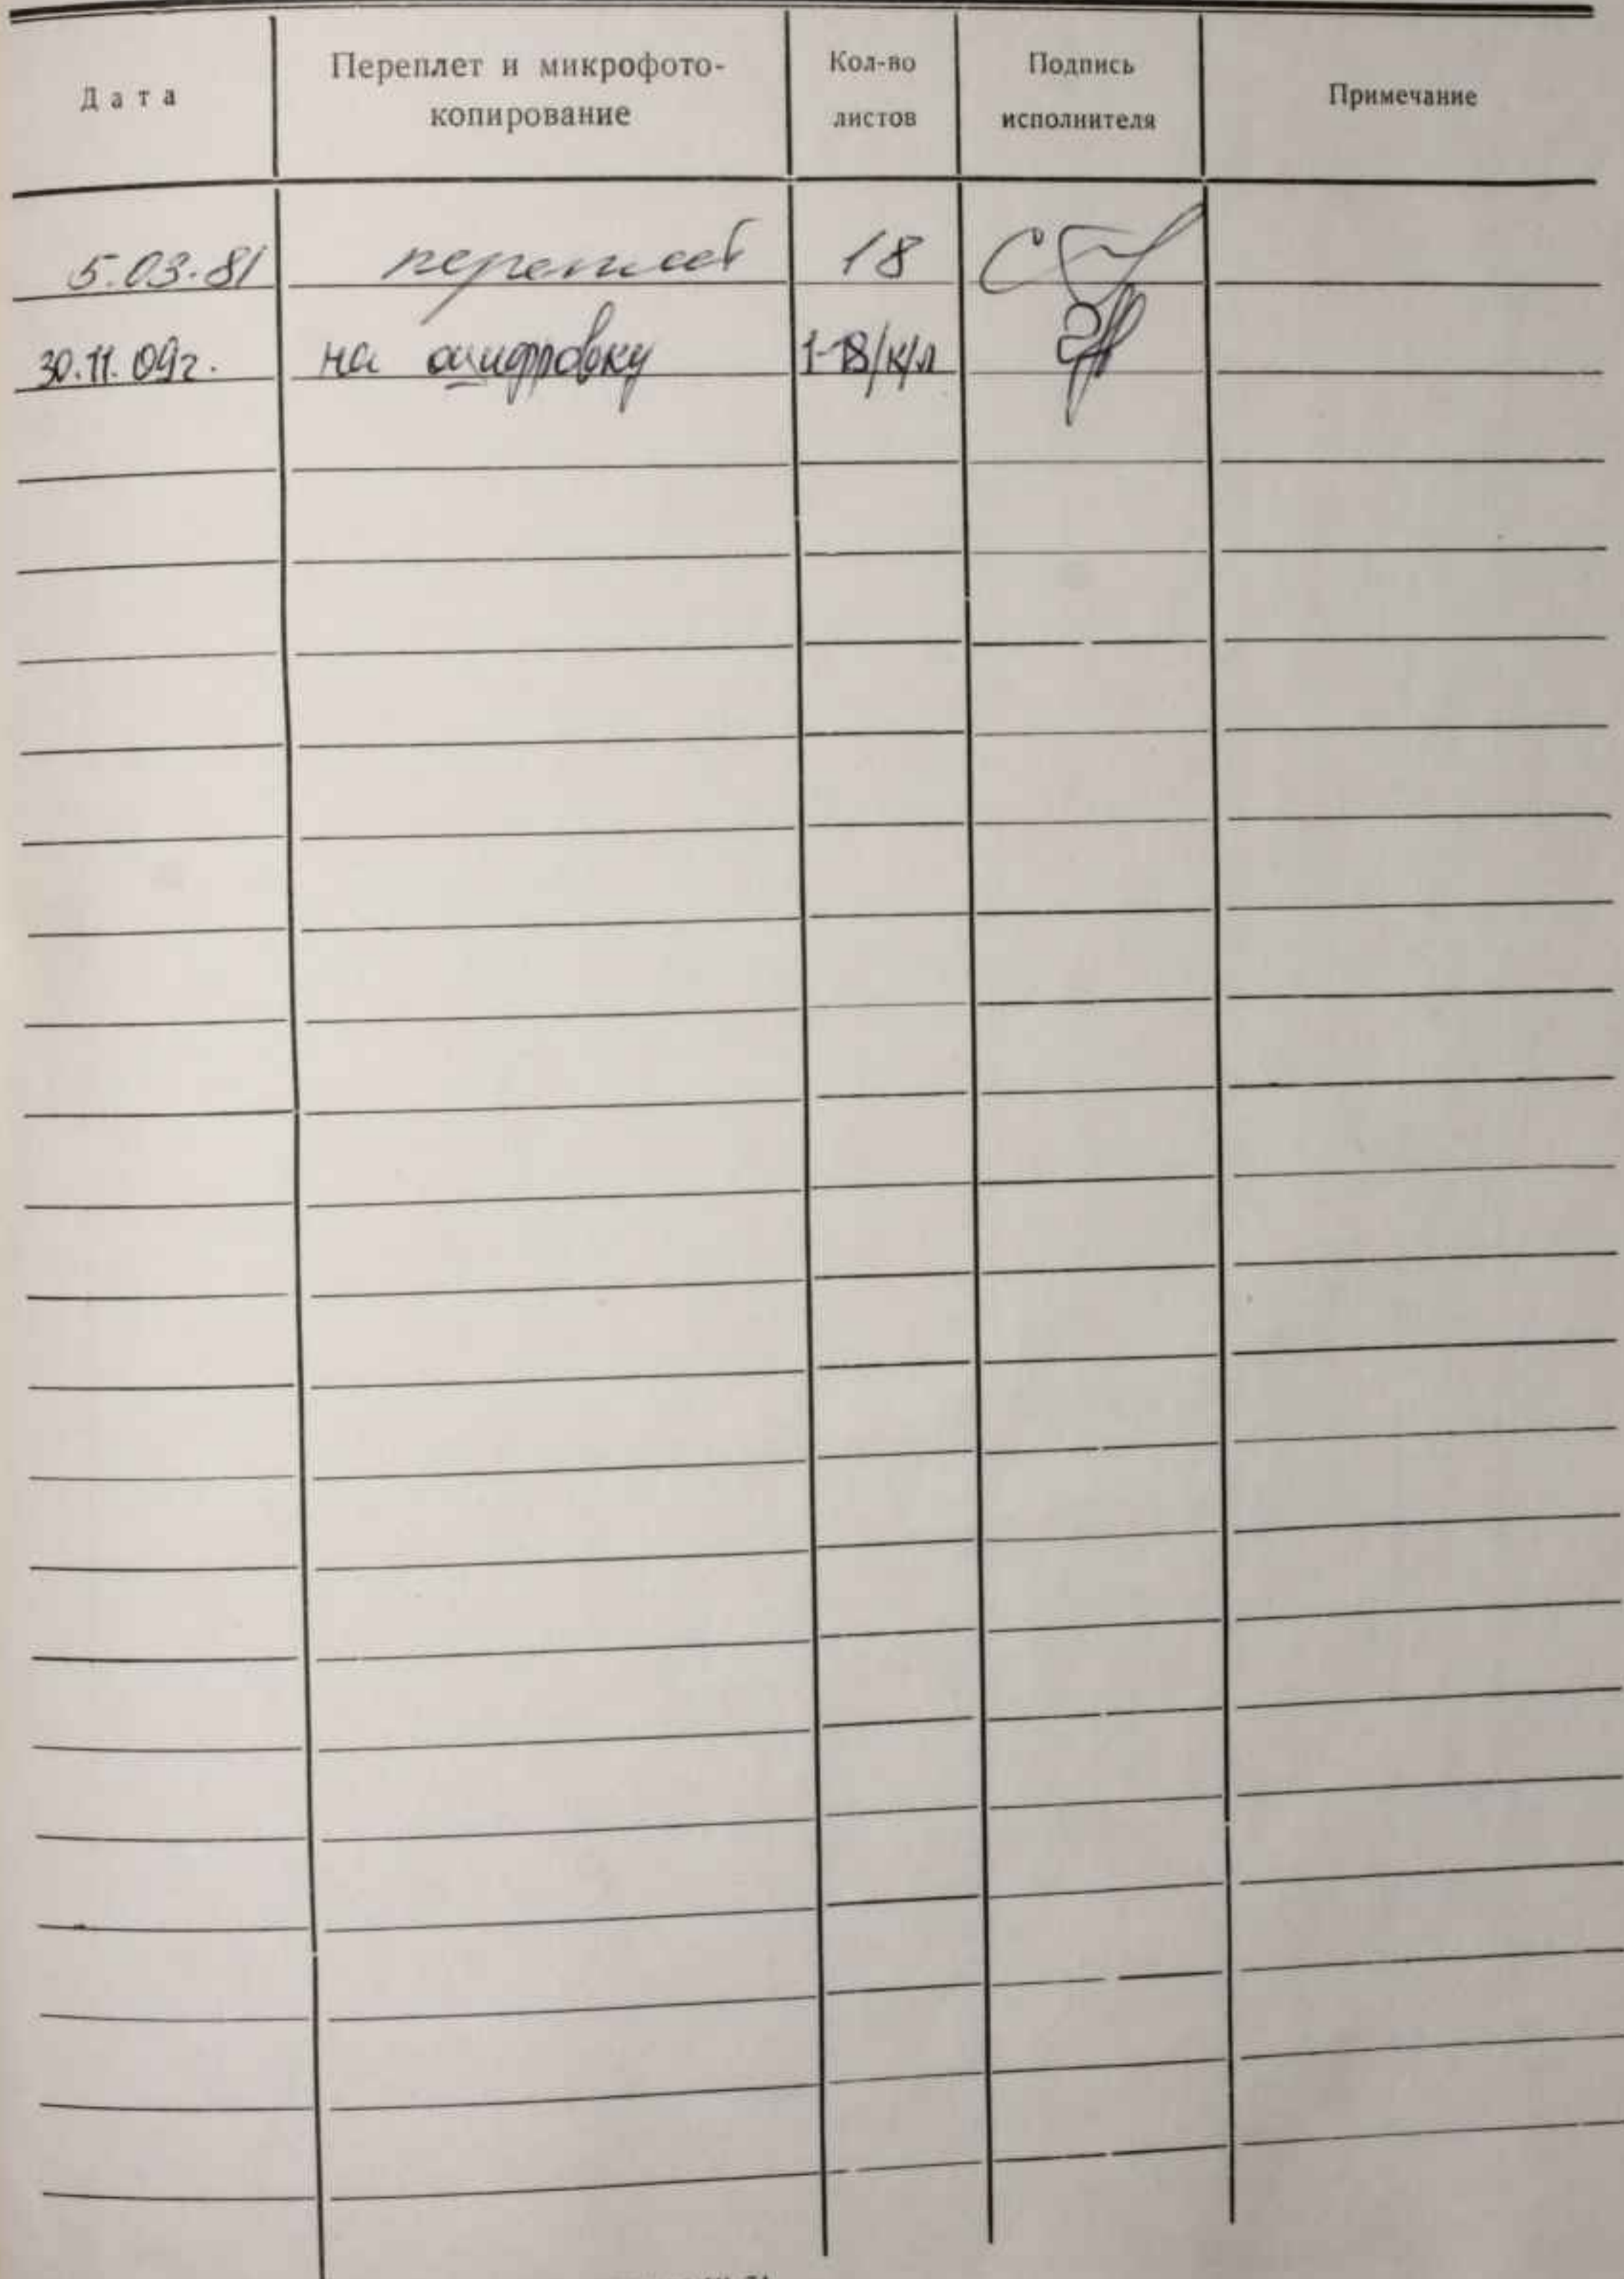 Дата
Переплет и микрофото-
копирование
Кол-во
листов
Подпись
исполнителя
Примечание
5.03.81 переплет 18
30.11.09г. на оцифровку 1-18/к/л